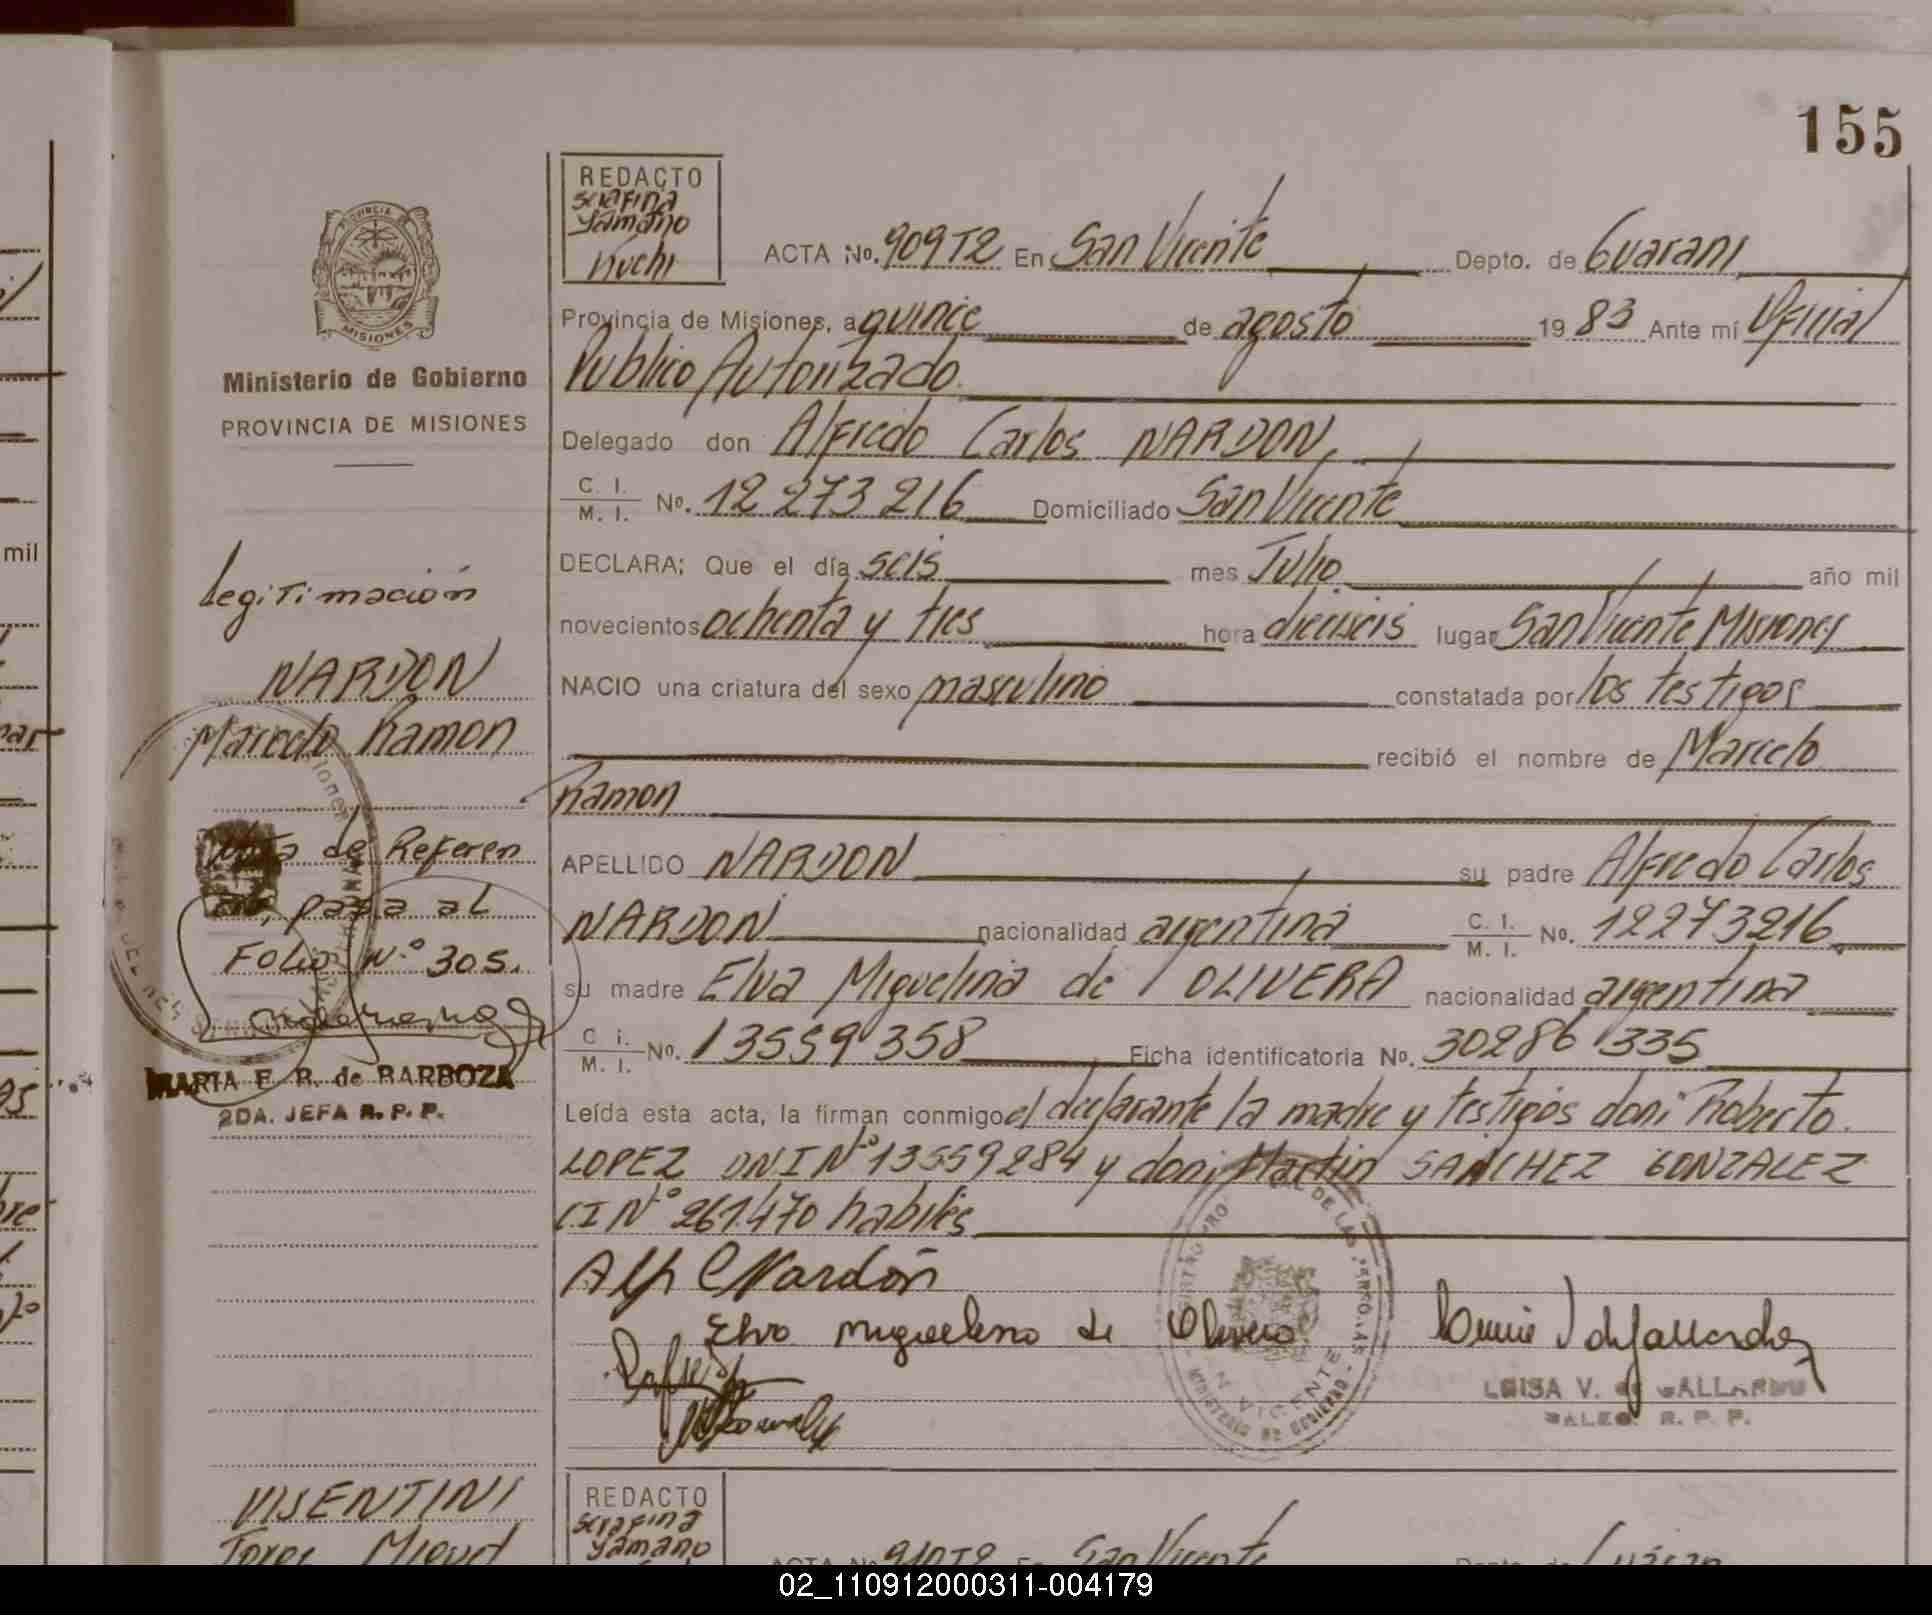 155
REDACTO
serafina
yamano
Kuchi
ACTA No. 909T2 En San Vicente Depto. de Guarani
Provincia de Misiones, a quince de agosto 1983 Ante mí Oficial
Publico Autorizado.
Delegado don Alfredo Carlos NARDON,
C. I. / M. I. No. 12 273 216 Domiciliado San Vicente
DECLARA; Que el día seis mes Julio año mil
novecientos ochenta y tres hora dieciseis lugar San Vicente Misiones
NACIO una criatura del sexo masculino constatada por los testigos
recibió el nombre de Marcelo
Ramon
APELLIDO NARDON su padre Alfredo Carlos
NARDON nacionalidad argentina C. I. / M. I. No. 12273216
su madre Elva Miguelina de OLIVERA nacionalidad argentina
C. I. / M. I. No. 13559358 Ficha identificatoria No. 30286335
Leída esta acta, la firman conmigo el declarante la madre y testigos don: Roberto
LOPEZ DNI Nº 13559284 y don: Martin SANCHEZ GONZALEZ
CI Nº 261.470 habiles
Alf C Nardón
Elva Miguelina de Olivera
LUISA V. de GALLARDO
R. P. P.
SAN VICENTE
MINISTERIO DE GOBIERNO
PROVINCIA DE
MISIONES
Ministerio de Gobierno
PROVINCIA DE MISIONES
Legitimación
NARDON
Marcelo Ramon
Nota de Referen
cia, pasa al
Folio Nº 305.
MARIA E. B. de BARBOZA
2DA. JEFA R. P. P.
VISENTINI
Jorge Miguel
REDACTO
serafina
yamano
ACTA No. 910T2 En San Vicente Depto. de
mil
02_110912000311-004179